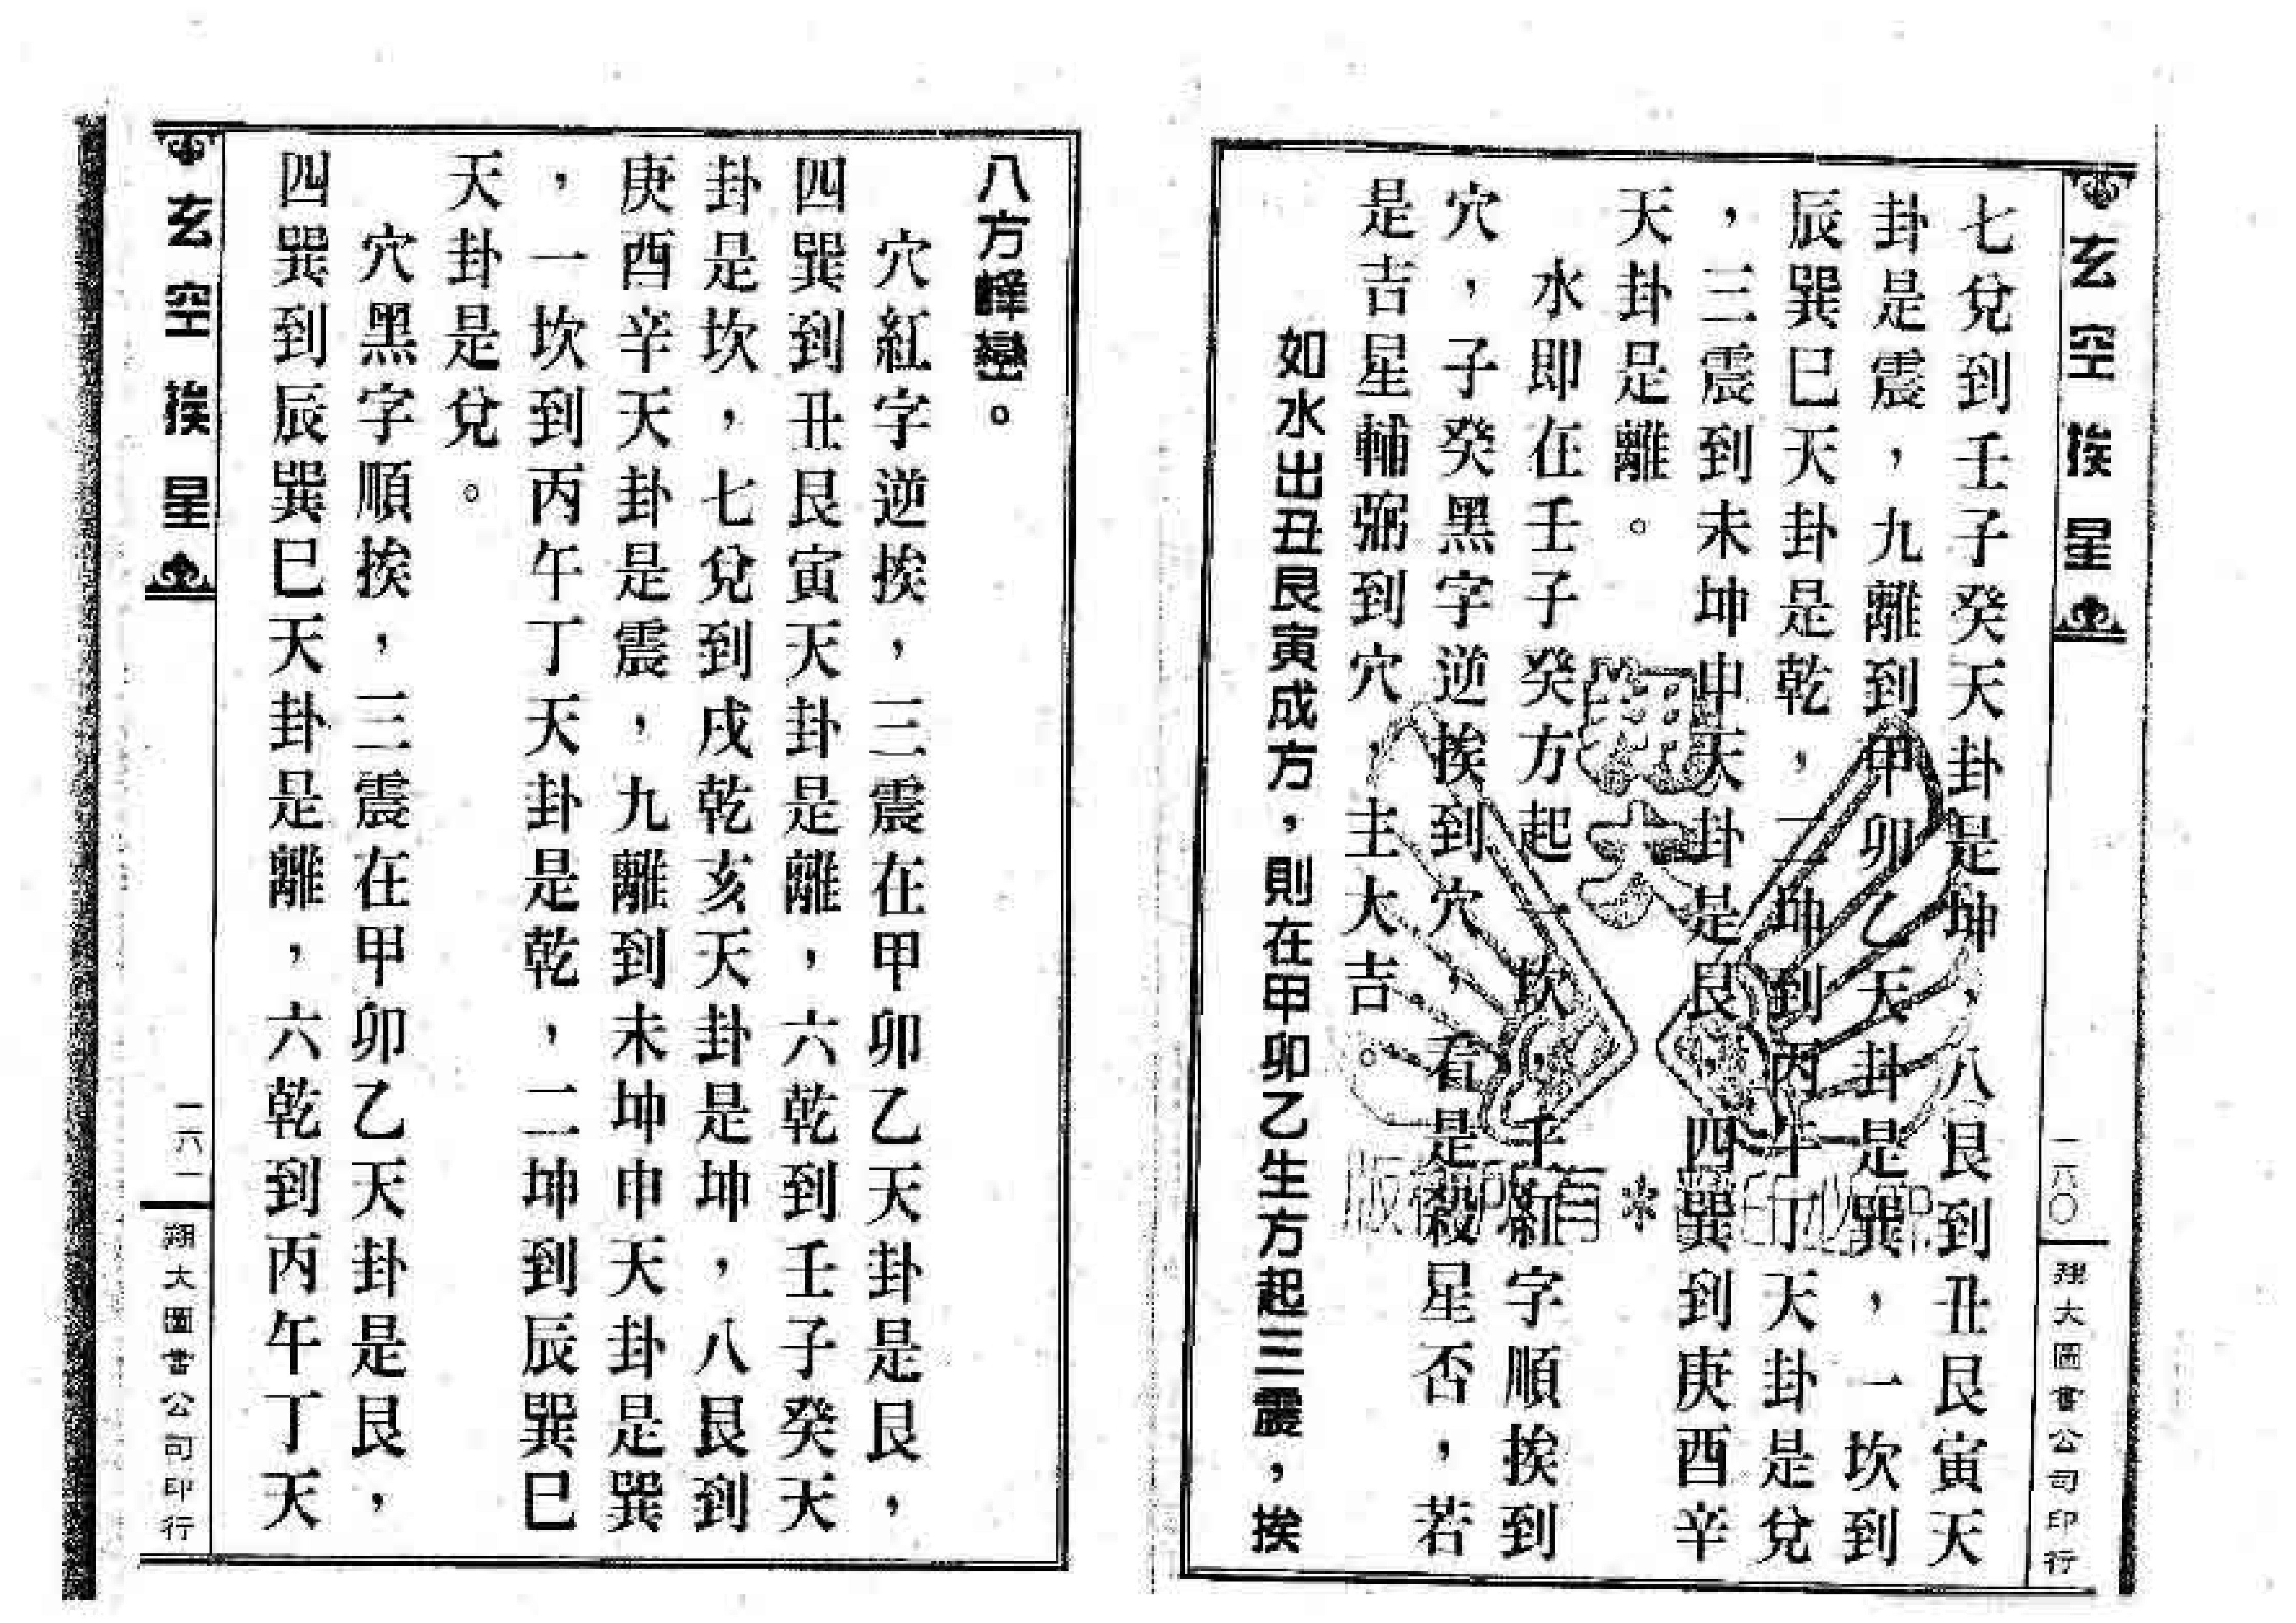 玄空挨星
一八〇
翔大圖書公司印行
七兌到壬子癸天卦是坤，八艮到丑艮寅天
卦是震，九離到甲卯乙天卦是巽，一坎到
辰巽巳天卦是乾，二坤到丙午丁天卦是兌
，三震到未坤申天卦是艮，四巽到庚酉辛
天卦是離。
水即在壬子癸方起一坎，壬紅字順挨到
穴，子癸黑字逆挨到穴，看是殺星否，若
是吉星輔弼到穴，主大吉。
如水出丑艮寅成方，則在甲卯乙生方起三震，挨
翔大
版權所有＊翻印必究
八方峰巒。
穴紅字逆挨，三震在甲卯乙天卦是艮，
四巽到丑艮寅天卦是離，六乾到壬子癸天
卦是坎，七兌到戌乾亥天卦是坤，八艮到
庚酉辛天卦是震，九離到未坤申天卦是巽
，一坎到丙午丁天卦是乾，二坤到辰巽巳
天卦是兌。
穴黑字順挨，三震在甲卯乙天卦是艮，
四巽到辰巽巳天卦是離，六乾到丙午丁天
玄空挨星
一八一
翔大圖書公司印行